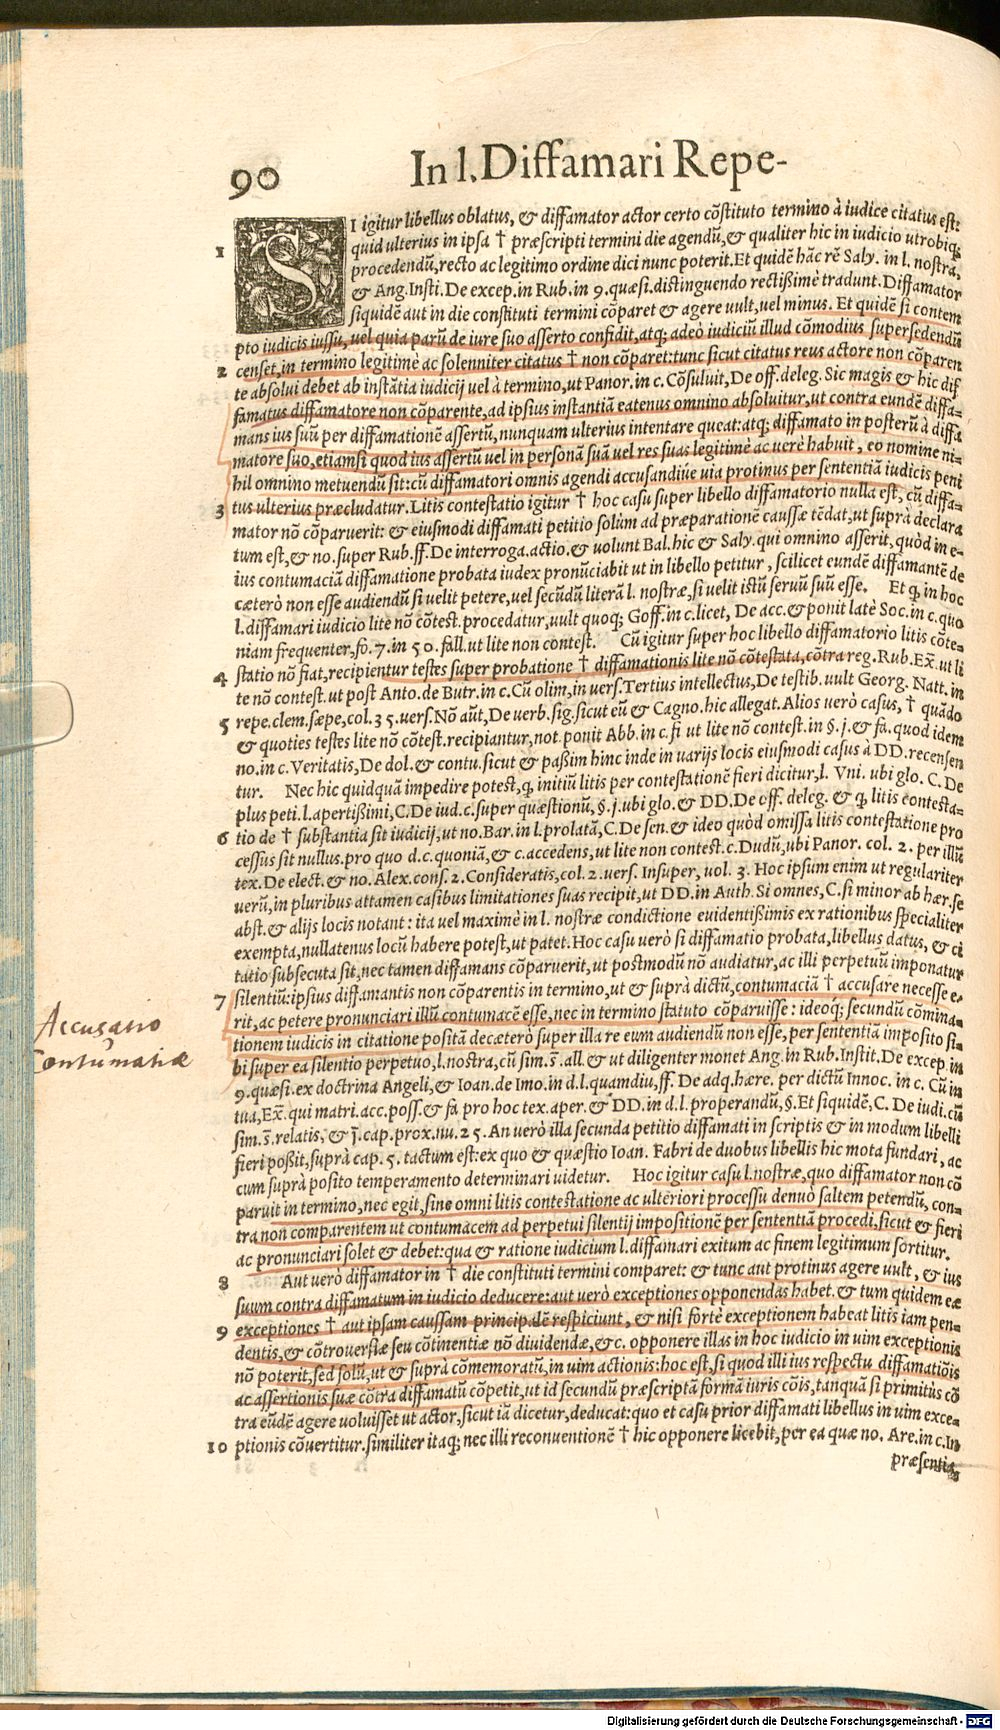 90 In l. Diffamari Repe-
1 SI igitur libellus oblatus, & diffamator actor certo cōstituto termino à iudice citatus est:
quid ulterius in ipsa † præscripti termini die agendū, & qualiter hic in iudicio utrobiq;
procedendū, recto ac legitimo ordine dici nunc poterit. Et quidē hāc rē Saly. in l. nostra,
& Ang. Insti. De excep. in Rub. in 9. quæsi. distinguendo rectißimè tradunt. Diffamator
siquidē aut in die constituti termini cōparet & agere uult, uel minus. Et quidē si contem
pto iudicis iussu, uel quia parū de iure suo asserto confidit, atq; adeò iudiciū illud cōmodius supersedendū
2 censet, in termino legitimè ac solenniter citatus † non cōparet: tunc sicut citatus reus actore non cōparen
te absolui debet ab instātia iudicij uel à termino, ut Panor. in c. Cōsuluit, De off. deleg. Sic magis & hic dif
famatus diffamatore non cōparente, ad ipsius instantiā eatenus omnino absoluitur, ut contra eundē diffa-
mans ius suū per diffamationē assertū, nunquam ulterius intentare queat: atq; diffamato in posterū à diffa
matore suo, etiamsi quod ius assertū uel in personā suā uel res suas legitimè ac uerè habuit, eo nomine ni-
hil omnino metuendū sit: cū diffamatori omnis agendi accusandiúe uia protinus per sententiā iudicis peni
3 tus ulterius præcludatur. Litis contestatio igitur † hoc casu super libello diffamatorio nulla est, cū diffa-
mator nō cōparuerit: & eiusmodi diffamati petitio solùm ad præparationē caussæ tēdat, ut suprà declara
tum est, & no. super Rub. ff. De interroga. actio. & uolunt Bal. hic & Saly. qui omnino asserit, quòd in e-
ius contumaciā diffamatione probata iudex pronūciabit ut in libello petitur, scilicet eundē diffamantē de
cæterò non esse audiendū si uelit petere, uel secūdū literā l. nostræ, si uelit istū seruū suū esse. Et q̨ in hoc
l. diffamari iudicio lite nō cōtest. procedatur, uult quoq; Goff. in c. licet, De acc. & ponit latè Soc. in c. quo
niam frequenter, fo. 7. in 50. fall. ut lite non contest. Cū igitur super hoc libello diffamatorio litis cōte-
4 statio nō fiat, recipientur testes super probatione † diffamationis lite nō cōtestata, cōtra reg. Rub. Ex̄. ut li
te nō contest. ut post Anto. de Butr. in c. Cū olim, in uers. Tertius intellectus, De testib. uult Georg. Natt. in
5 repe. clem. sæpe, col. 35. uers. Nō aūt, De uerb. sig. sicut eū & Cagno. hic allegat. Alios uerò casus, † quādo
& quoties testes lite nō cōtest. recipiantur, not. ponit Abb. in c. fi ut lite nō contest. in §. j. & fa. quod idem
no. in c. Veritatis, De dol. & contu. sicut & paßim hinc inde in varijs locis eiusmodi casus à DD. recensen
tur. Nec hic quidquā impedire potest, q̨ initiū litis per contestationē fieri dicitur, l. Vni. ubi glo. C. De
plus peti. l. apertißimi, C. De iud. c. super quæstionū, §. j. ubi glo. & DD. De off. deleg. & q̨ litis contesta-
6 tio de † substantia sit iudicij, ut no. Bar. in l. prolatā, C. De sen. & ideo quòd omissa litis contestatione pro
cessus sit nullus. pro quo d. c. quoniā, & c. accedens, ut lite non contest. c. Dudū, ubi Panor. col. 2. per illū
tex. De elect. & no. Alex. cons. 2. Consideratis, col. 2. uers. Insuper, uol. 3. Hoc ipsum enim ut regulariter
uerū, in pluribus attamen casibus limitationes suas recipit, ut DD. in Auth. Si omnes, C. si minor ab hær. se
abst. & alijs locis notant: ita uel maximè in l. nostræ condictione euidentißimis ex rationibus specialiter
exempta, nullatenus locū habere potest, ut patet. Hoc casu uerò si diffamatio probata, libellus datus, & ci
tatio subsecuta sit, nec tamen diffamans cōparuerit, ut postmodū nō audiatur, ac illi perpetuū imponatur
7 silentiū: ipsius diffamantis non cōparentis in termino, ut & suprà dictū, contumaciā † accusare necesse e-
rit, ac petere pronunciari illū contumacē esse, nec in termino statuto cōparuisse: ideoq; secundū cōmina-
tionem iudicis in citatione positā decæterò super illa re eum audiendū non esse, per sententiā imposito si-
bi super ea silentio perpetuo, l. nostra, cū sim. s̄. all. & ut diligenter monet Ang. in Rub. Instit. De excep. in
9. quæsi. ex doctrina Angeli, & Ioan. de Imo. in d. l. quamdiu, ff. De adq. hære. per dictū Innoc. in c. Cū in
tua, Ex̄. qui matri. acc. poss. & fa. pro hoc tex. aper. & DD. in d. l. properandū, §. Et siquidē, C. De iudi. cū
sim. s̄. relatis, & j̄. cap. prox. nu. 25. An uerò illa secunda petitio diffamati in scriptis & in modum libelli
fieri poßit, suprà cap. 5. tactum est: ex quo & quæstio Ioan. Fabri de duobus libellis hic mota fundari, ac
cum suprà posito temperamento determinari uidetur. Hoc igitur casu l. nostræ, quo diffamator non cō
paruit in termino, nec egit, sine omni litis contestatione ac ulteriori processu denuò saltem petendū, con-
tra non comparentem ut contumacem ad perpetui silentij impositionē per sententiā procedi, sicut & fieri
ac pronunciari solet & debet: qua & ratione iudicium l. diffamari exitum ac finem legitimum sortitur.
8 Aut uerò diffamator in † die constituti termini comparet: & tunc aut protinus agere uult, & ius
suum contra diffamatum in iudicio deducere: aut uerò exceptiones opponendas habet. & tum quidem eæ
9 exceptiones † aut ipsam caussam principalē respiciunt, & nisi fortè exceptionem habeat litis iam pen-
dentis, & cōtrouersiæ seu cōtinentiæ nō diuidendæ, &c. opponere illas in hoc iudicio in uim exceptionis
nō poterit, sed solū, ut & suprà cōmemoratū, in uim actionis: hoc est, si quod illi ius respectu diffamatiōis
ac assertionis suæ cōtra diffamatū cōpetit, ut id secundū præscriptā formā iuris cōis, tanquā si primitùs cō
tra eūdē agere uoluisset ut actor, sicut iā dicetur, deducat: quo et casu prior diffamati libellus in uim exce-
10 ptionis cōuertitur. similiter itaq; nec illi reconuentionē † hic opponere licebit, per ea quæ no. Are. in c. In
præsentia,
Accusatio
Contumatiæ
Digitalisierung gefördert durch die Deutsche Forschungsgemeinschaft - DFG